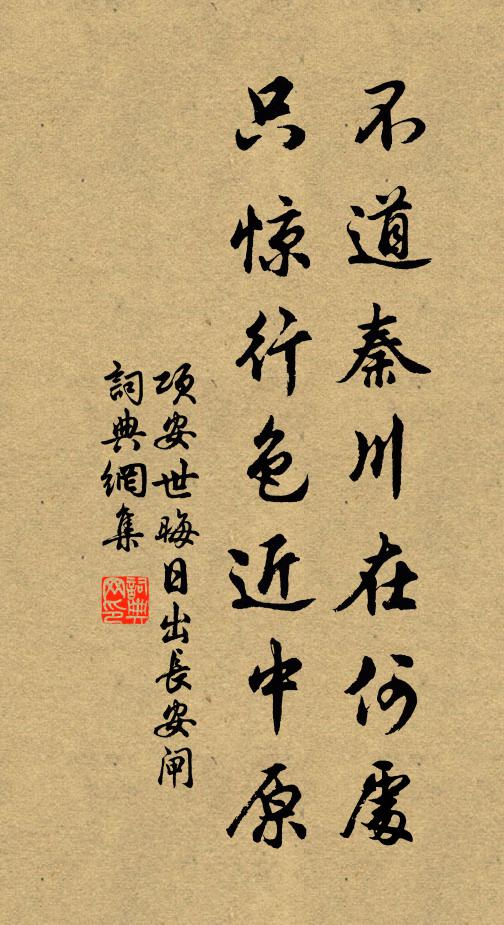 不道秦川在何處
只惊行色近中原
項安世晦日出長安閘
詞典網集
詞典网印